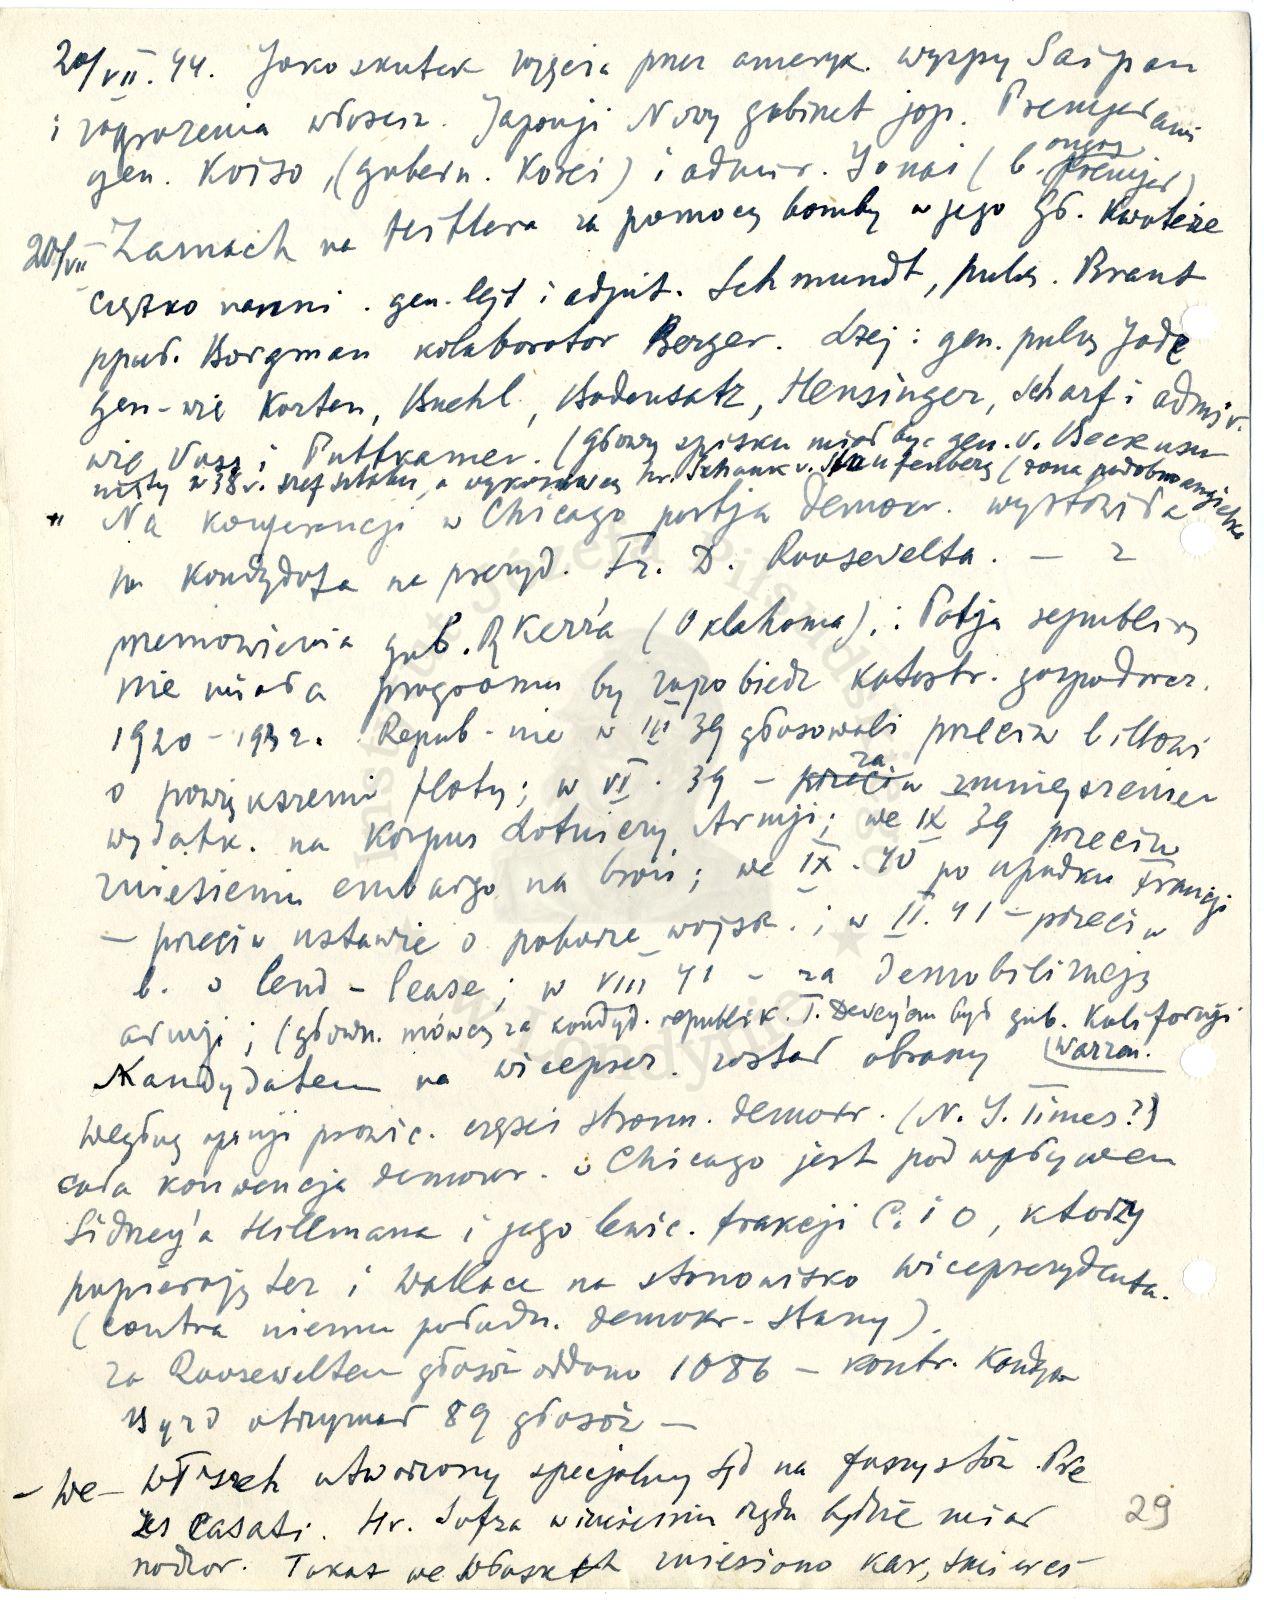 20/VII. 44. Jako skutek zajęcia przez ameryk. wyspy Saipan
i zagrożenia właściw. Japonji Nowy gabinet jap. Premjerami
gen. Koiso, (gubern. Korei) i admir. Jonai (b. premjer)
20/VII – Zamach na Hitlera za pomocą bomby w jego Gł. Kwaterze
ciężko ranni . gen. lejt i adjut. Schmundt, pułk. Brant
ppuł. Borgman kolaborator Berger. Lżej: gen. pułk Jodl
gen-wie Korten, Buehl, Bodensatz, Hensinger, Scharf i admir.
wie Voss i Puttkamer. (Głową spisku miał być gen. v. Beck usu
nięty w 38 r. szef sztabu, a wykonawcą hr. Schenk v. Stauffenberg (żona podobno angielka
" Na konferencji w Chicago partja demokr. wystawiła
na kandydata na prezyd. Fr. D. Roosevelta. – z
przemówienia gub. R Kerr'a (Oklahoma),: Patja republik
nie miała programu by zapobiedz katastr. gospodarcz.
1920 – 1932. Repub-nie w III 39 głosowali przeciw billowi
o powiększeniu floty; w VI. 39 – za zmniejszeniem
wydatk. na Korpus Lotniczy Armji; we IX 39 przeciw
zniesieniu embargo na broń; we IX. 40 po upadku Francji
– przeciw ustawie o poborze wojsk.; w II. 41 – przeciw
b. o lend – lease; w VIII 41 – za demobilizacją
armji; (główn. mówcą za kandyd. republik. T. Dewey'em był gub. Kalifornji
Kandydatem na wiceprez. został obrany (Warren.
Według opinji prawic. części stronn. demokr. (N. Y. Times?)
cała konwencja demokr. w Chicago jest pod wpływem
Sidney'a Hillmana i jego lewic. frakcji C. i O, którzy
popierają też i Wallace na stanowisko wiceprezydenta.
(contra niemu połudn. demokr. stany).
za Rooseveltem głosów oddano 1086 – kontr. Kandyda
Byrd otrzymał 89 głosów –
– We – Włoszech utworzony specjalny sąd na faszystów. Pre
zes Casati. Hr. Sofza w imieniu rządu będzie miał
nadzor. Takaż we Włoszech zniesiono karę śmierci
29
Instytut Józefa Piłsudskiego w Londynie